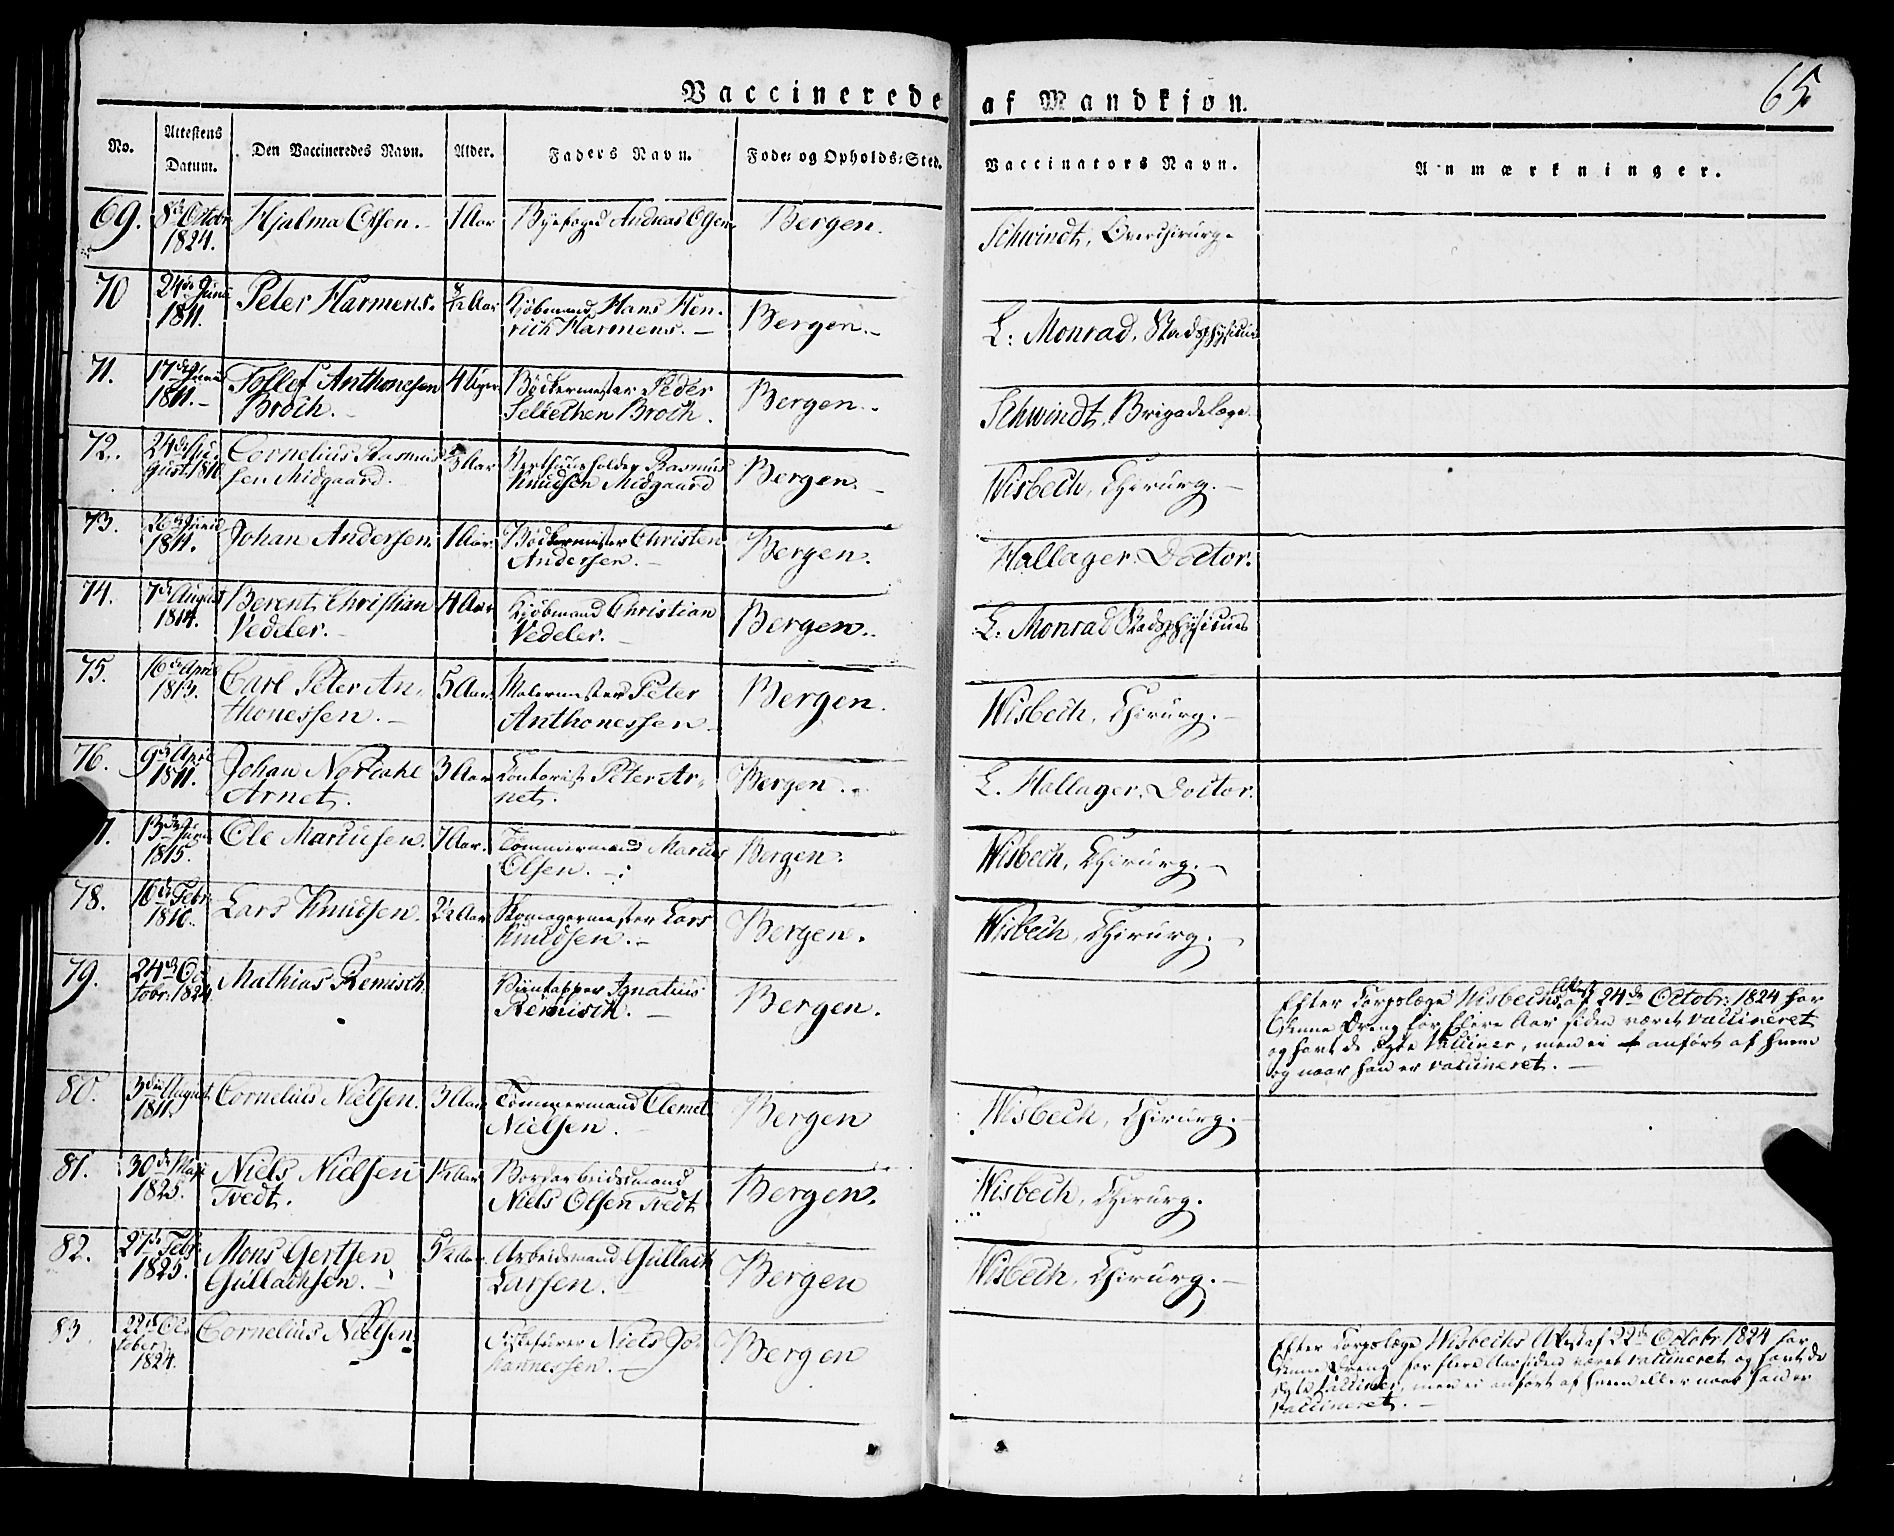 Vaccinerede af Mandkjøn.
65
No.
Attestens Datum.
Den Vaccineredes Navn.
Alder.
Faders Navn.
Føde- og Opholds-Sted.
Vaccinators Navn.
Anmærkninger.
69. 8de Octobr Hjalma Olsen. 1 Aar Byefoged Andreas Olsen. Bergen. Schwindt, Overchirurg.
1824.
70 24de Junii Peter Harmens. Aar Kjøbmand Hans Hen-
1811. rich Harmens. Bergen. L: Monrad, Stadsphysicus
71. 17de Junii Tollef Anthonesen 4 Uger Bødkermester Peder
1811. Broch. Sellethen Broch. Bergen. Schwindt, Brigadelæge.
72. 24de Au- Cornelius Rasmus- Aar Rasmus
gust 1810 sen Midgaard. Knudsen Midgaard Bergen. Wisbech, Chirurg.
73. 26de Junii Johan Andersen. 1 Aar Bødkermester Christen
1811. Andersen. Bergen. Hallager. Doctor.
74. 7de August Berent Christian 4 Aar Kjøbmand Christian
1814. Vedeler. Vedeler. Bergen. L. Monrad Stadsphysicus
75. 16de April Carl Peter An- 5 Aar. Malermester Peter
1813. thonessen. Anthonessen Bergen. Wisbech, Chirurg.
76. 9de April Johan Nordahl 3 Aar Contorist Peter Ar-
1811. Arnet. net. Bergen. L. Hallager. Doctor.
13de Junii Ole Mariusen. 7 Aar. Tømmermand Marius
1815. Olsen. Bergen. Wisbech, Chirurg.
78. 16de Febr: Lars Knudsen. 2½ Aar Skomagermester Lars
1810. Knudsen. Bergen. Wisbech, Chirurg.
79. 24de Oc- Mathias Remisch. Viintapper Ignatius
tobr: 1824 Remisch. Bergen.
Efter Corpslæge Wisbechs Attest af 24de Octobr: 1824 har
denne Dreng for flere Aar siden været vaccineret
og havt de ægte Vacciner, men ei anført af hvem
og naar han er vaccineret.
80. 3die August Cornelius Nielsen. 3 Aar Tømmermand Clemet
1811. Nielsen. Bergen Wisbech, Chirurg.
81. 30de Maji Niels Nielsen 1½ Aar Bordarbeidsmand
1825. Tvedt. Niels Olsen Tvedt Bergen. Wisbech, Chirurg.
82. 27de Febr: Mons Gertsen 5½ Aar Arbeidsmand Gullach
1825. Gullachsen. Larsen. Bergen Wisbech, Chirurg.
83. 22de Oc- Cornelius Nielsen Niels Jo-
tober 1824. hannessen. Bergen
Efter Corpslæge Wisbechs Attest af 22de Octobr 1824 har
denne Dreng for flere Aar siden været vaccineret og havt de
ægte Vacciner, men ei anført af hvem eller naar han er
vaccineret.